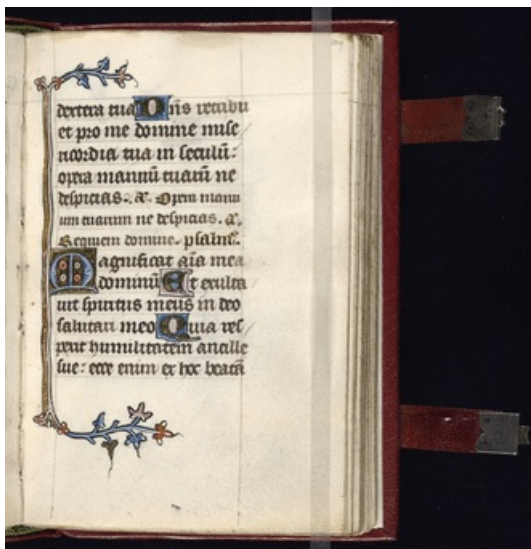 dextera tua Dn̄s retribu
et pro me domine mise
ricordia tua in seculū:
opera manuū tuarū ne
despicias. a. Opera manu
um tuarum ne despicias. a.
Requiem domine. psalmꝰ.
Magnificat aīa mea
dominū Et exulta
uit spiritus meus in deo
salutari meo Quia res
pexit humilitatem ancille
sue: ecce enim ex hoc beatā